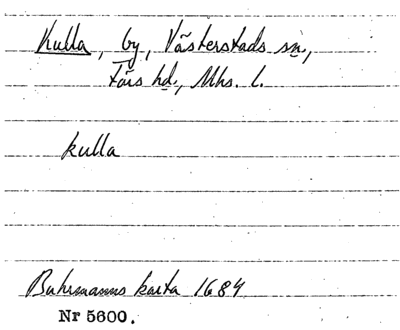 Kulla, by, Västerstads sn,
Färs hd, Mhs. l.
kulla
Buhrmanns karta 1684
Nr 5600.